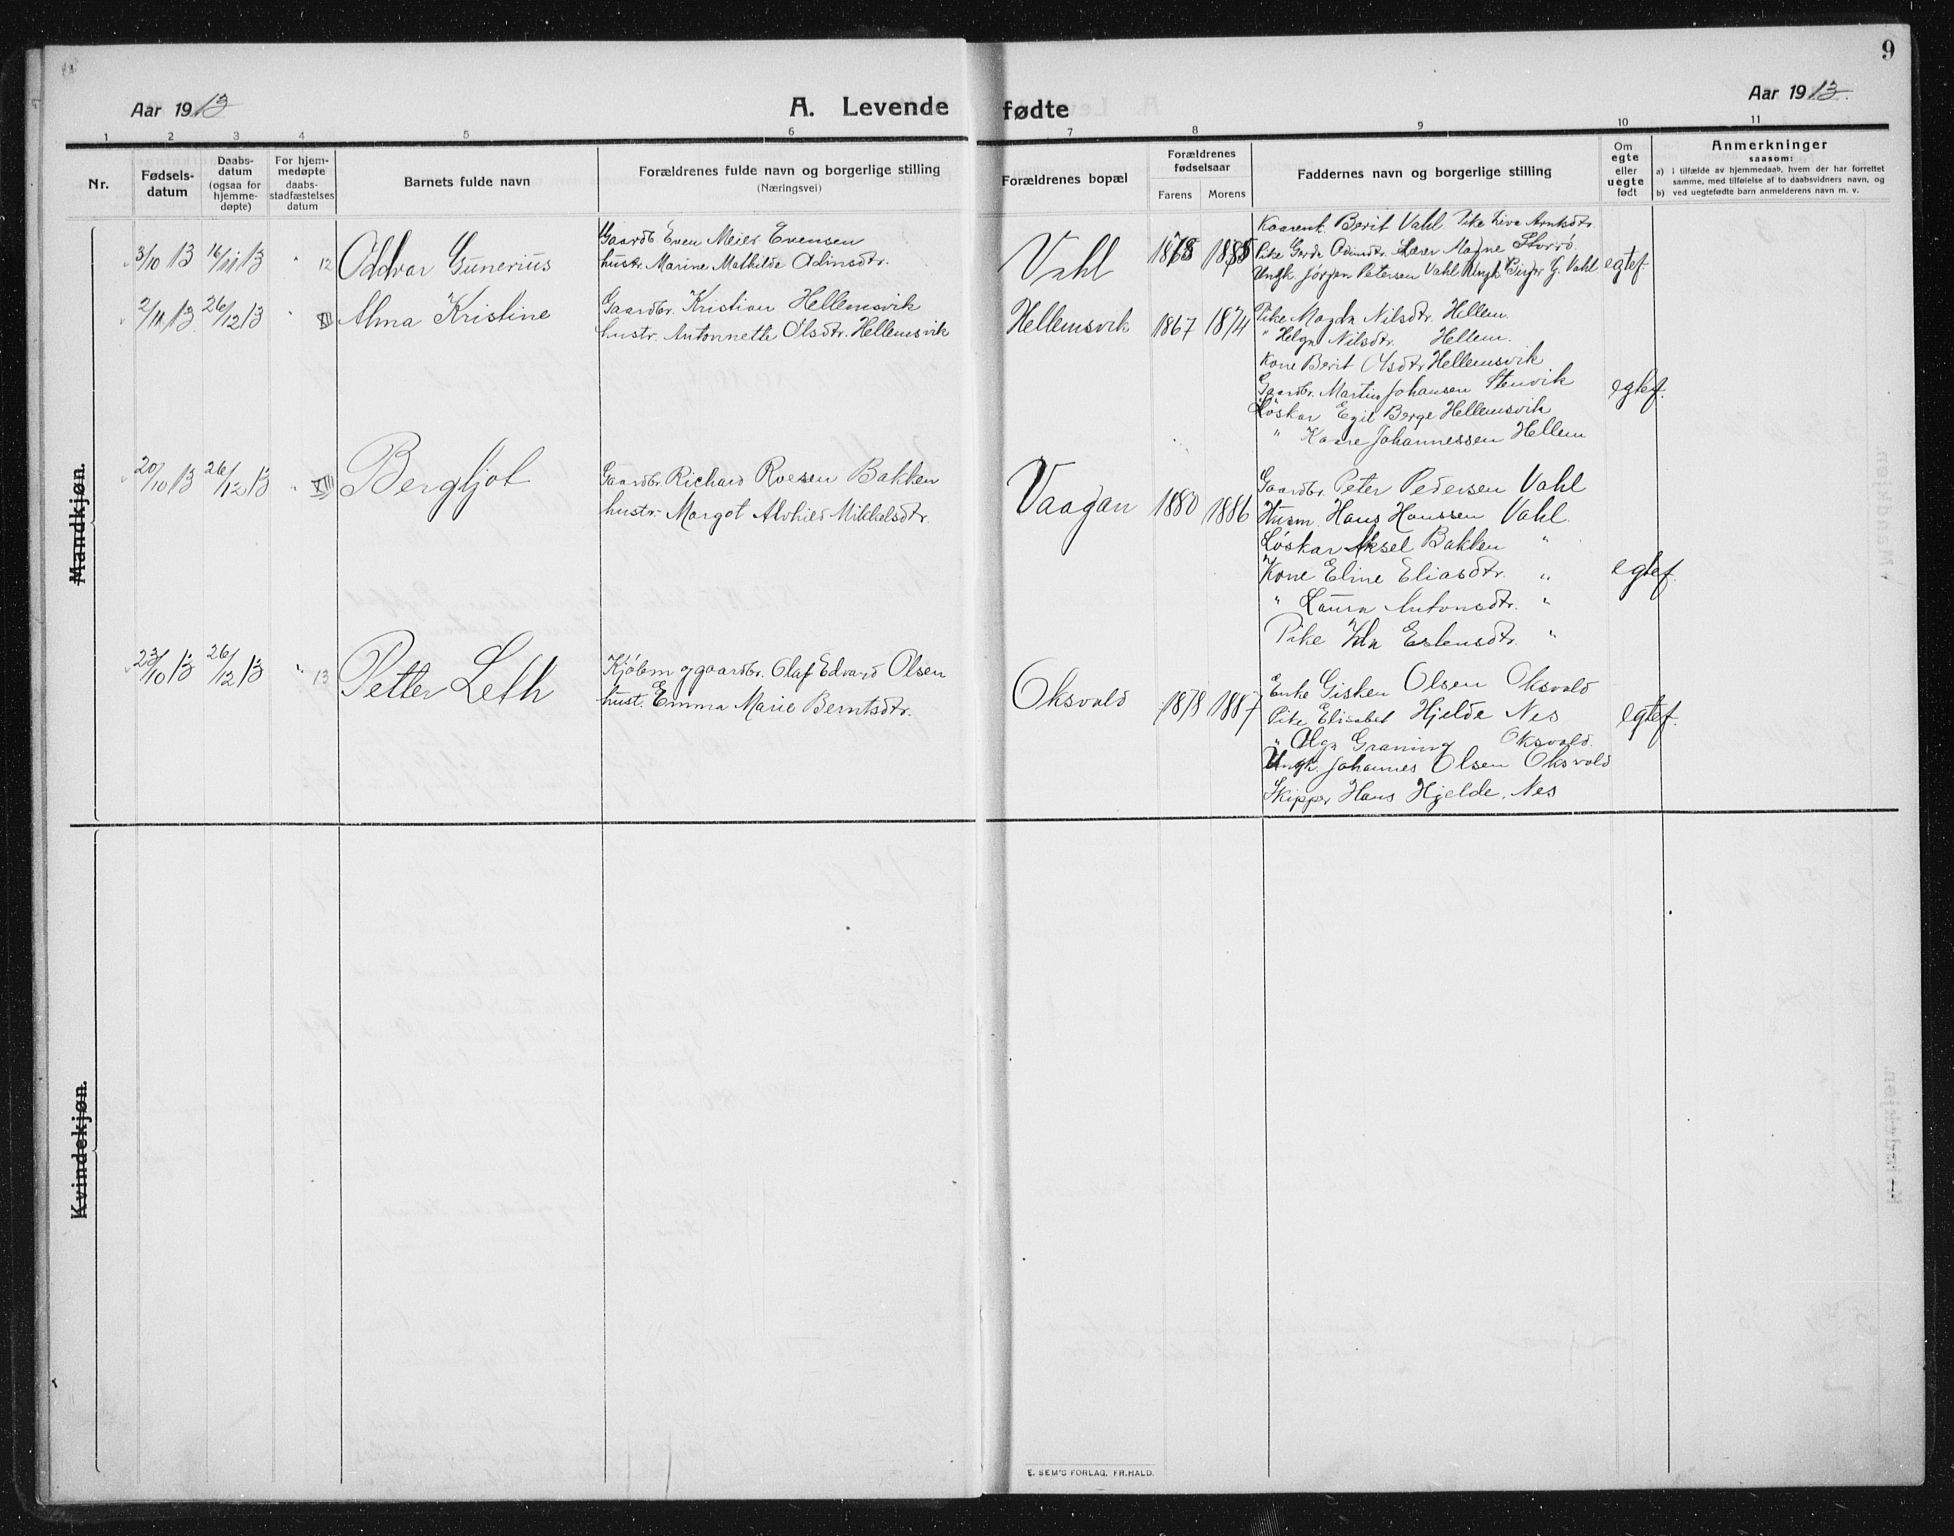 9
Aar 1913
A. Levende fødte
Aar 1913.
1 2 3 4 5 6 7 8 9 10 11
Nr.
Fødsels-
datum
Daabs-
datum
(ogsaa for
hjemme-
døpte)
For hjem-
medøpte
daabs-
stadfæstelses
datum
Barnets fulde navn
Forældrenes fulde navn og borgerlige stilling
(Næringsvei)
Forældrenes bopæl
Forældrenes
fødselsaar
Farens Morens
Faddernes navn og borgerlige stilling
Om
egte
eller
uegte
født
Anmerkninger
saasom:
a) i tilfælde av hjemmedaab, hvem der har forrettet
samme, med tilføielse af to daabsvidners navn, og
b) ved uegtefødte barn anmelderens navn m. v.
Mandkjøn.
3/10 13 16/11 13 " 12 Oddvar Gunerius
Gaardb Even Meier Evensen
hustr. Marine Mathilde Odinsdtr.
Vahl
Berit Vahl Pike Liva Arntsdtr
Pike Gerda Odinsdtr. Lærer Magne Storrø
Ungk Jørgen Petersen Vahl Ungk Birger G. Vahl
egtef.
2/11 13. 26/12 13 " XII Alma Kristine
Gaardbr. Kristian Hellemsvik
hustr. Antonnette Olsdtr. Hellemsvik
Hellemsvik 1867 1874
Pike Magda Nilsdtr. Hellem.
" Helga Nilsdtr. Hellem.
Kone Berit Olsdtr Hellemsvik
Gaardbr. Martin Johansen Stenvik
Løskar Egil Berge Hellemsvik
" Kaare Johannessen Hellem
egtef.
20/10 13 26/12 13 " XIII Bergljot
Gaardbr. Richard Roesen Bakken
hustr. Margot Alvhild Mikkelsdtr.
Vaagan 1880 1886
Gaardbr. Peter Pedersen Vahl
Husm. Hans Hanssen Vahl.
Løskar Aksel Bakken "
Kone Eline Eliasdtr. "
" Laura Antonsdtr. "
Pike Ida Estensdtr. "
egtef.
23/10 13 26/12 13 " 13 Petter Leth
Kjøbm og gaardbr. Olaf Edvard Olsen
hust. Emma Marie Berntsdtr.
Oksvold 1878 1887
Enke Gisken Olsen Oksvold
Pike Elisabet Hjelde Nes
" Olga Graning Oksvold.
Ungk. Johannes Olsen Oksvold
Skipper Hans Hjelde, Nes
egtef.
Kvindekjøn.
E. SEM'S FORLAG, FR.HALD.